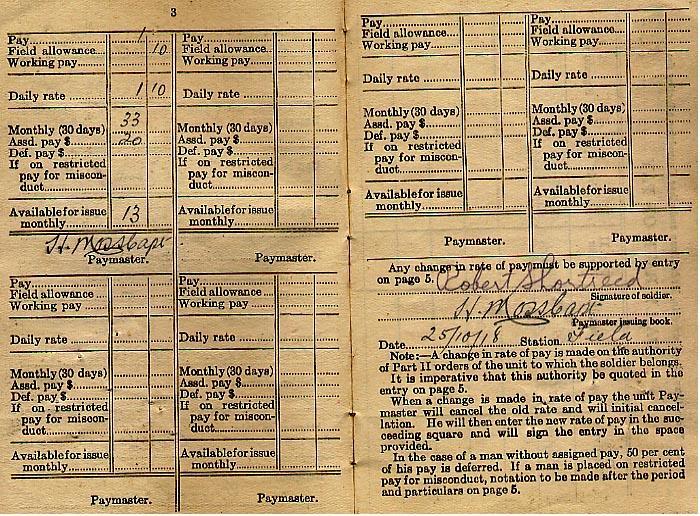 3
Pay 1
Field allowance 10
Working pay
Daily rate 1 10
Monthly (30 days) 33
Assd. pay $ 20
Def. pay $
If on restricted
pay for miscon-
duct
Available for issue
monthly 13
H. Moss Capt
Paymaster.
Pay
Field allowance
Working pay
Daily rate
Monthly (30 days)
Assd. pay $
Def. pay $
If on restricted
pay for miscon-
duct
Available for issue
monthly
Paymaster.
Pay
Field allowance
Working pay
Daily rate
Monthly (30 days)
Assd. pay $
Def. pay $
If on restricted
pay for miscon-
duct
Available for issue
monthly
Paymaster.
Pay
Field allowance
Working pay
Daily rate
Monthly (30 days)
Assd. pay $
Def. pay $
If on restricted
pay for miscon-
duct
Available for issue
monthly
Paymaster.
Pay
Field allowance
Working pay
Daily rate
Monthly (30 days)
Assd. pay $
Def. pay $
If on restricted
pay for miscon-
duct
Available for issue
monthly
Paymaster.
Pay
Field allowance
Working pay
Daily rate
Monthly (30 days)
Assd. pay $
Def. pay $
If on restricted
pay for miscon-
duct
Available for issue
monthly
Paymaster.
Any change in rate of pay must be supported by entry
on page 5. Robert Shortreed
Signature of soldier.
H. Moss Capt
Paymaster issuing book.
Date 25/10/18 Station Field
Note:—A change in rate of pay is made on the authority
of Part II orders of the unit to which the soldier belongs.
It is imperative that this authority be quoted in the
entry on page 5.
When a change is made in rate of pay the unit Pay-
master will cancel the old rate and will initial cancel-
lation. He will then enter the new rate of pay in the suc-
ceeding square and will sign the entry in the space
provided.
In the case of a man without assigned pay, 50 per cent
of his pay is deferred. If a man is placed on restricted
pay for misconduct, notation to be made after the period
and particulars on page 5.